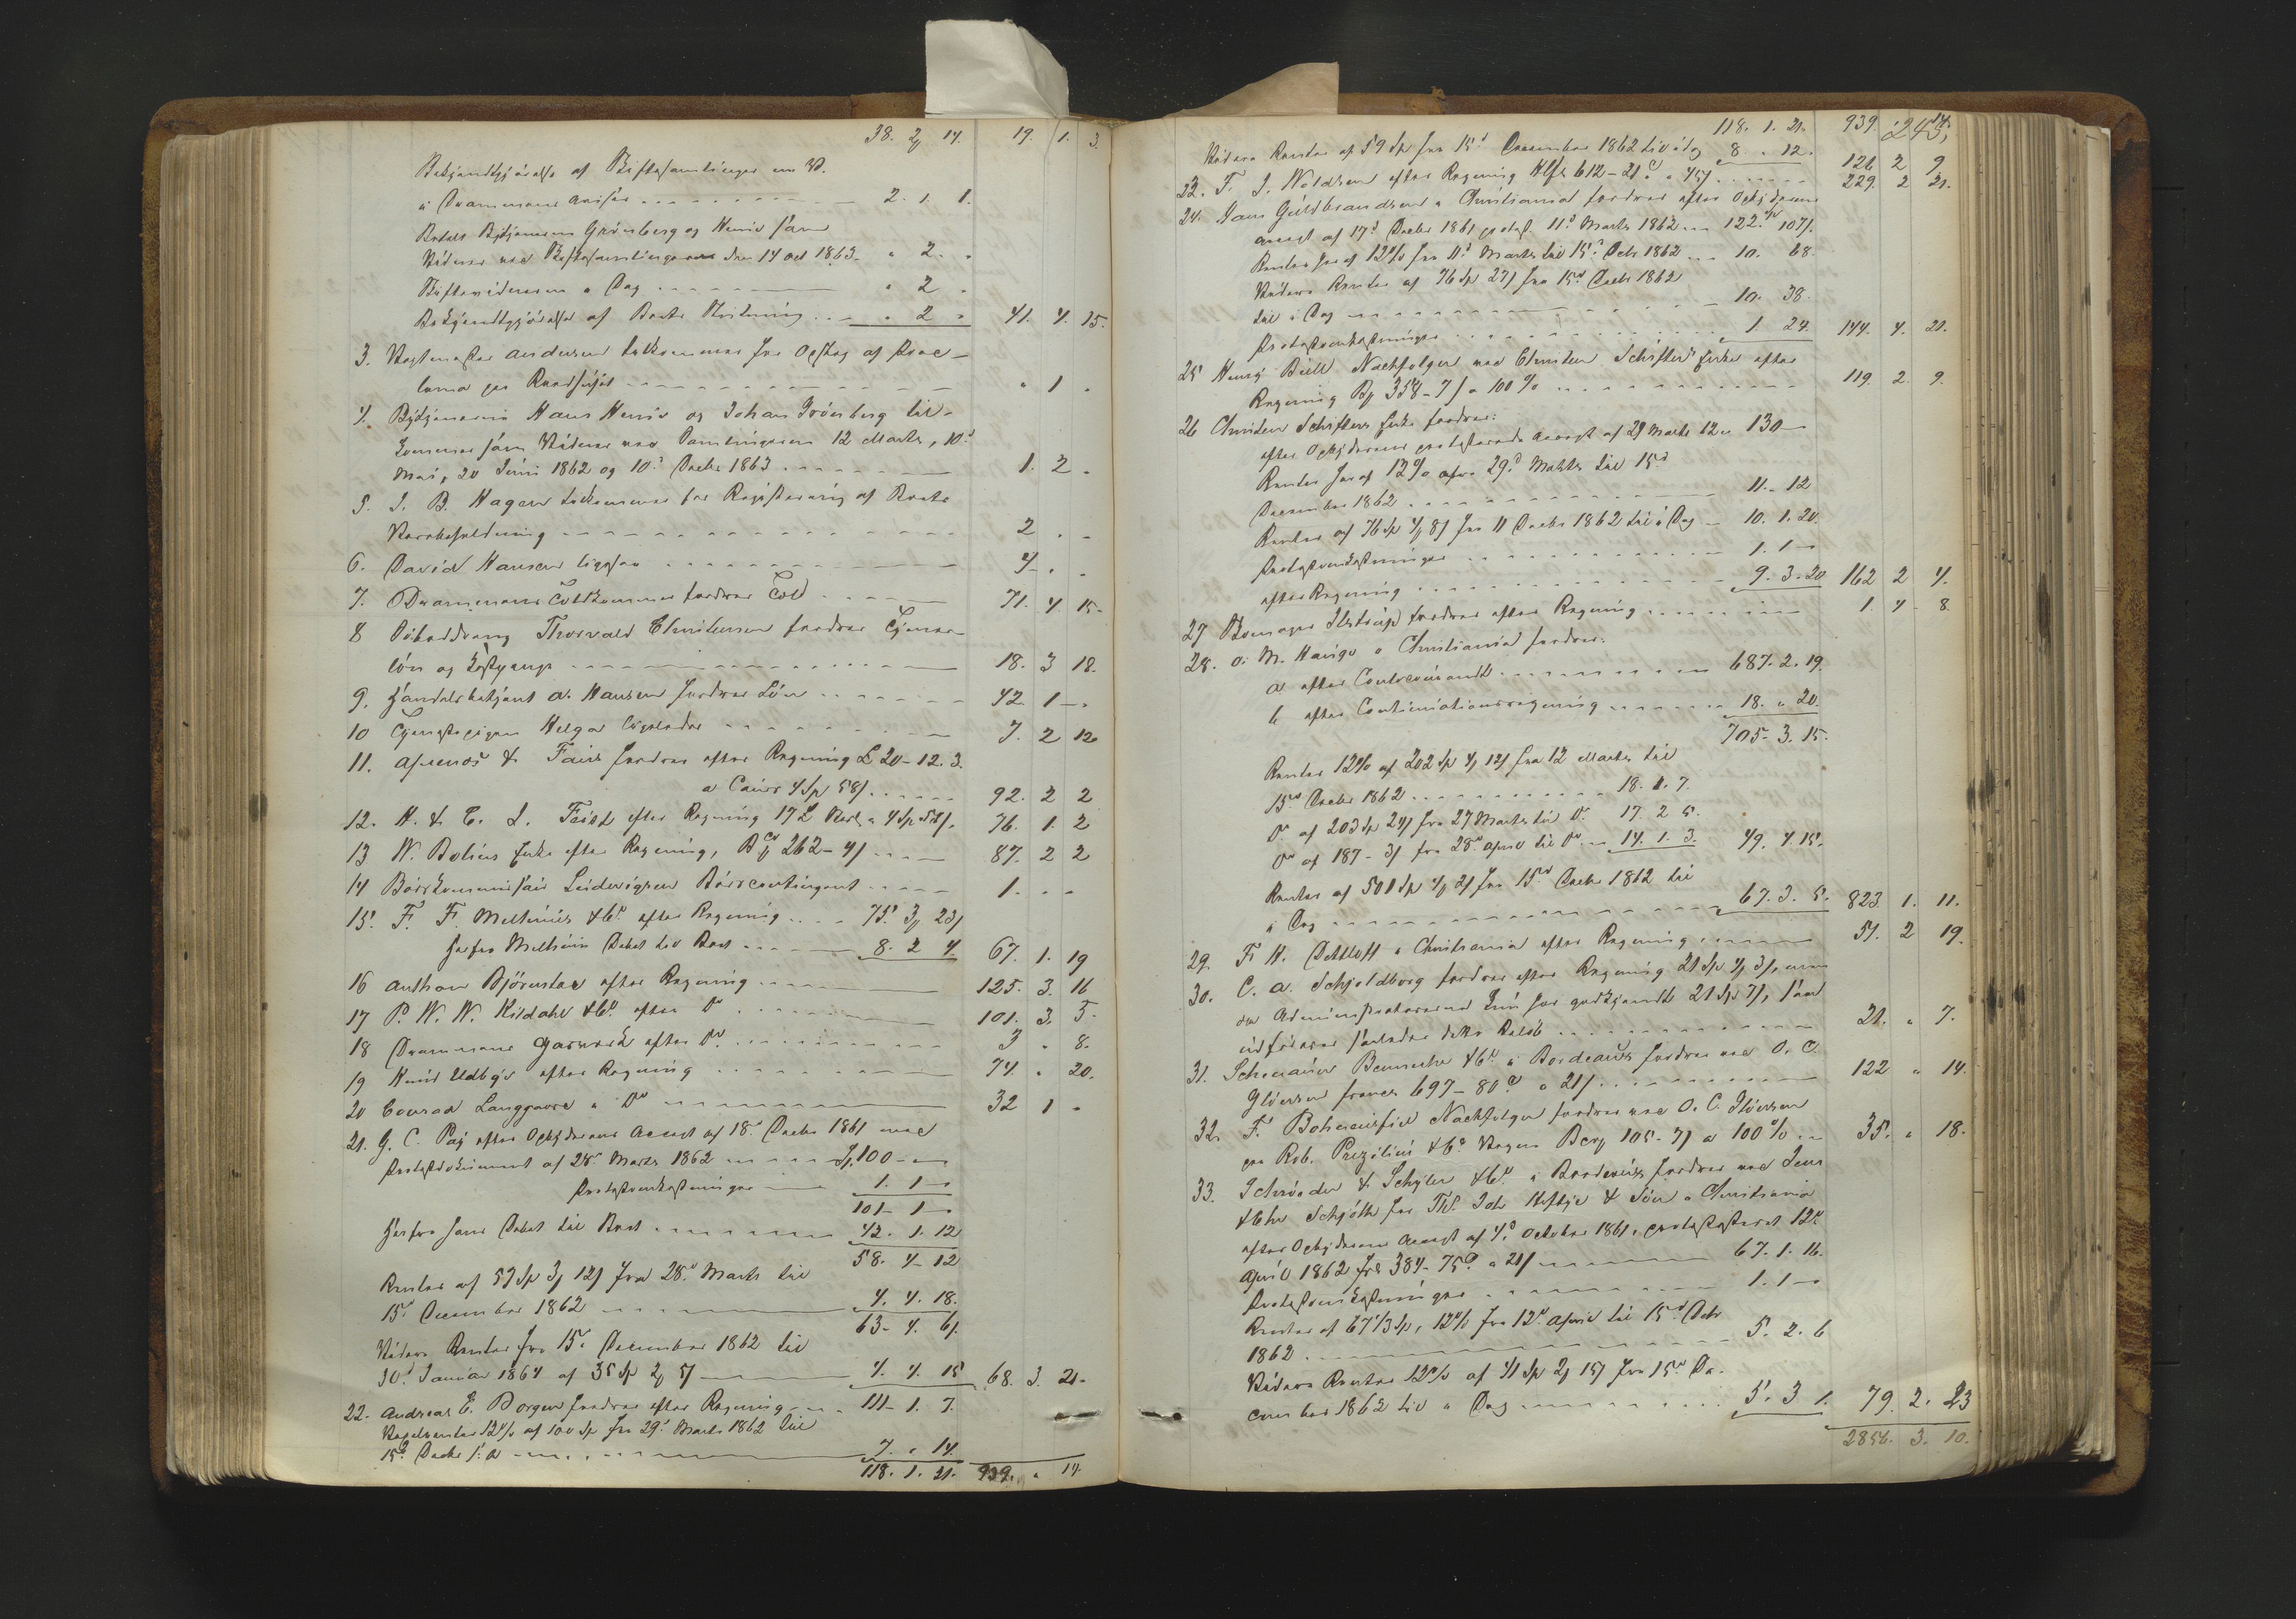 38. 2 14. 19. 1. 3.
Bekjendtgjørelse af Skiftesamlinger m. V.
i Drammens Aviser 2. 1. 1.
Betalt Bydjernerne Grönberg og Henriv som
Vidner ved Skiftesamlingerne den 14 Oct 1863. " 2. "
Skiftevidnerne i Dag " 2 "
Bekjendtgjørelse af Boets Slutning " 2 " 41. 4. 15.
3. Vagtmester Andersen tilkommer for Opslag af Procla-
ma paa Raadhuset " 1 "
4. Hans Henriv og Johan Grönberg til-
kommer som Vidner ved Samlingerne 12 Marts, 10d
Mai, 20 Juni 1862 og 10d Decbr 1863 1. 2 "
5. J. B. Hagen tilkommer for Registrering af Boets
2 " "
6. David Hansen ligesaa 4 " "
7. Drammens Toldkammer fordrer Told 71. 4 15.
8 Thorvald Christensen fordrer Tjener-
løn og Kostpenge 18. 3 18.
9. Handelsbetjent A. Hansen fordrer Løn 42. 1 -
10 Tjenestepigen Helga ligeledes 7. 2 12
11. & Fairs fordrer efter Regning £ 20-12. 3.
a Cours 4 Sp 58 92. 2 2
12. H. & C. L. Feist efter Regning 17£ Sterl. a 4 Sp 58. 76. 1. 2
13 W. Bolins Enke efter Regning, 262-4 87. 2 2
14 Ludvigsen 1. " "
15. F. F. Melthiius & Co. efter Regning 75. 3 23
Herfra Debet til Boet 8. 2 4. 67. 1. 19
16 Anthon Björnstad efter Regning 125. 3. 16
17 P. W. W. Kildahl & Co. efter Do 101. 3. 5.
18 Drammens Gasværk efter Do 3 " 8.
19 Knud Udbye efter Regning 74. " 20.
20 Conrad Langgaard " Do 32 1 "
21. G. C. Pay efter Opbyderens Accept af 18d Decbr 1861 med
Protestdokument af 28d Marts 1862 Sp. 100 - "
Protestomkostninger 1. 1 -
101 - 1 -
Herfra hans Debet til Boet 42. 1. 12
58. 4 - 12
Renter af 59 Sp 3 12 fra 28d Marts til
15d December 1862 4. 4. 18.
63 - 4. 6.
Videre Renter fra 15d December 1862 til
30d Januar 1864 af 35 Sp 2 5 4. 4. 15 68. 3. 21.
22. Andreas E. Borgen fordrer efter Regning 111 - 1. 7.
Vexelrenter 12% af 100 Sp fra 29d Marts 1862 til
15d Decbr s. A 7. " 14.
118. 1. 21. 939. " 14.
245.
118. 1. 21. 939. " 14.
Videre Renter af 59 Sp fra 15d December 1862 til i Dag 8 " 12. 126 2 9
23. F. J. Noldsen efter Regning 612-21 a 45 229. 2 21.
24. Hans Guldbrandsen i Christiania fordrer efter Opbyderens
Accept af 17d Decbr 1861 protest. 11d Marts 1862 122. 107
Renter heraf 12% fra 11d Marts til 15d Decbr 1862 10. 68.
Videre Renter af 76 Sp 27 fra 15d Decbr 1862
til i Dag 10. 38.
Protestomkostninger 1 24. 144. 4. 21.
25 Henry Büll Nachfolger ved Christen Schifters Enke efter
Regning 358-7 a 100% 119. 2. 9.
26 Christen Schifters Enke fordrer:
efter Opbyderens protesterede Accept af 29 Marts 12 130 -
Renter heraf 12% fra 29d Marts til 15d
December 1862 11. " 12
Renter af 76 Sp 4 8 fra 11 Decbr 1862 til i Dag 10. 1. 20.
Protestomkostninger 1. 1 -
efter Regning 9. 3. 20 162 2 4.
27 Ilstrup fordrer efter Regning 1. 4 8.
28. O. M. Hauge i Christiania fordrer:
a efter Contocourant 687. 2. 19.
b efter Continuationsregning 18. " 20.
705. 3. 15.
Renter 12% af 202 Sp 4 12 fra 12 Marts til
15d Decbr 1862 18. 1. 7.
Do af 203 Sp 24 fra 27 Marts til Do 17. 2 5.
Do af 187 - 3 fra 28d April til Do 14. 1. 3. 49. 4. 15.
Renter af 501 Sp 4 2 fra 15d Decbr 1862 til
i Dag 67. 3. 5. 823. 1. 11.
29. F. H. Dettloff i Christiania efter Regning 51. 2 19.
30. C. A. Schjoldborg fordrer efter Regning 21 Sp 4 3, men
da Administratorerne kun har godkjendt 21 Sp 7, saa
udføres saaledes dette Beløb 21. " 7.
31. & Co. i Bordeaux fordrer ved O. C.
Gløersen francs 697-80 a 21 122 " 14.
32. F. Nachfolger fordrer ved O. C. Gløersen
paa Rob. & Co. 105-7 a 100% 35. " 18.
33. Schröder & Schyler & Co. i Bordeaux fordrer ved Jens
Schjøth for Th. Joh Heftye & Søn i Christiania
efter Opbyderens Accept af 4d October 1861, protesteret 12d
April 1862 frs 384-75 a 21 67. 1. 16.
Protestomkostninger 1. 1 -
Renter af 67 1/3 Sp, 12% fra 12d April til 15d Decbr
1862 5. 2. 6
Videre Renter 12% af 41 Sp 2 15 fra 15d De-
cember 1862 til i Dag 5. 3 1. 79. 2. 23
2856. 3. 10.